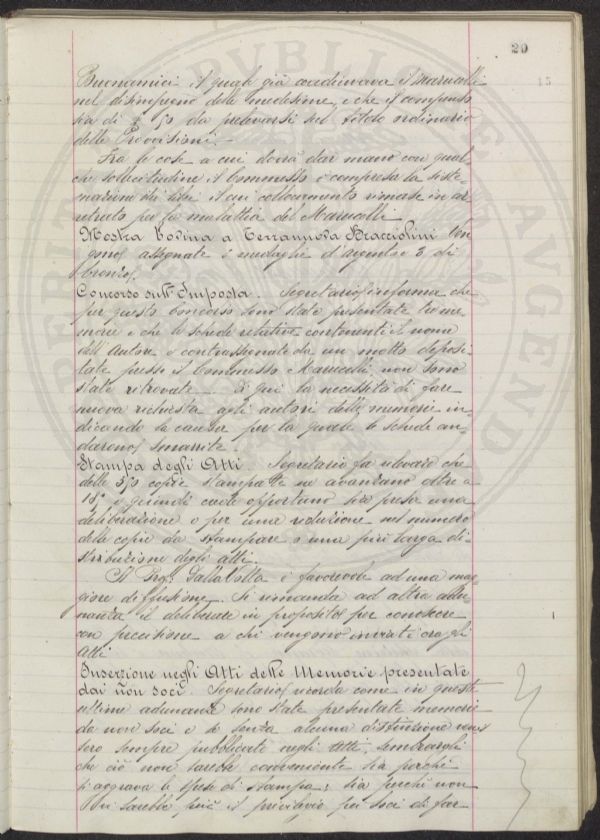 20
15
Buonamici il quale già coadiuvava il Marucelli
nel disimpegno delle medesime, e che il compenso
sia di £ 50 da prelevarsi sul titolo ordinario
delle Provvisioni.
Fra le cose a cui dovrà dar mano con qual
che sollecitudine il Commesso è compresa la siste-
mazione dei libri il cui collocamento rimase in ar
retrato per la malattia del Marucelli
Mostra bovina a Terranuova Bracciolini Ven
gono assegnate 2 medaglie d'argento e 3 di
bronzo.
Concorso sull'Imposta. Segretario informa che
per questo concorso sono state presentate tre me-
morie e che le schede relative contenenti il nome
dell'Autore e contrassegnate da un motto deposi-
tate presso il Commesso Marucelli, non sono
state ritrovate. Di qui la necessità di fare
nuova richiesta agli autori delle memorie in-
dicando la causa per la quale le schede an-
darono smarrite.
Stampa degli Atti. Segretario fa rilevare che
delle 550 copie stampate ne avanzano oltre a
180 e quindi crede opportuno sia presa una
deliberazione o per una reduzione nel numero
delle copie da stampare o una più larga di-
stribuzione degli atti.
Il Prof. Dalla Volta è favorevole ad una mag
giore diffusione. Si rimanda ad altra adu-
nanza il deliberare in proposito per conoscere
con precisione a chi vengono inviati ora gli
Atti
Inserzione negli Atti delle Memorie presentate
dai non soci. Segretario ricorda come in queste
ultime adunanze sono state presentate memorie
da non soci e se senza alcuna distinzione venis
sero sempre pubblicate negli Atti, sembrargli
che ciò non sarebbe conveniente sia perchè
si aggrava la spesa di stampa; sia perchè non
vi sarebbe più il privilegio pei soci di far
PVBLICAE
AVGENDAE